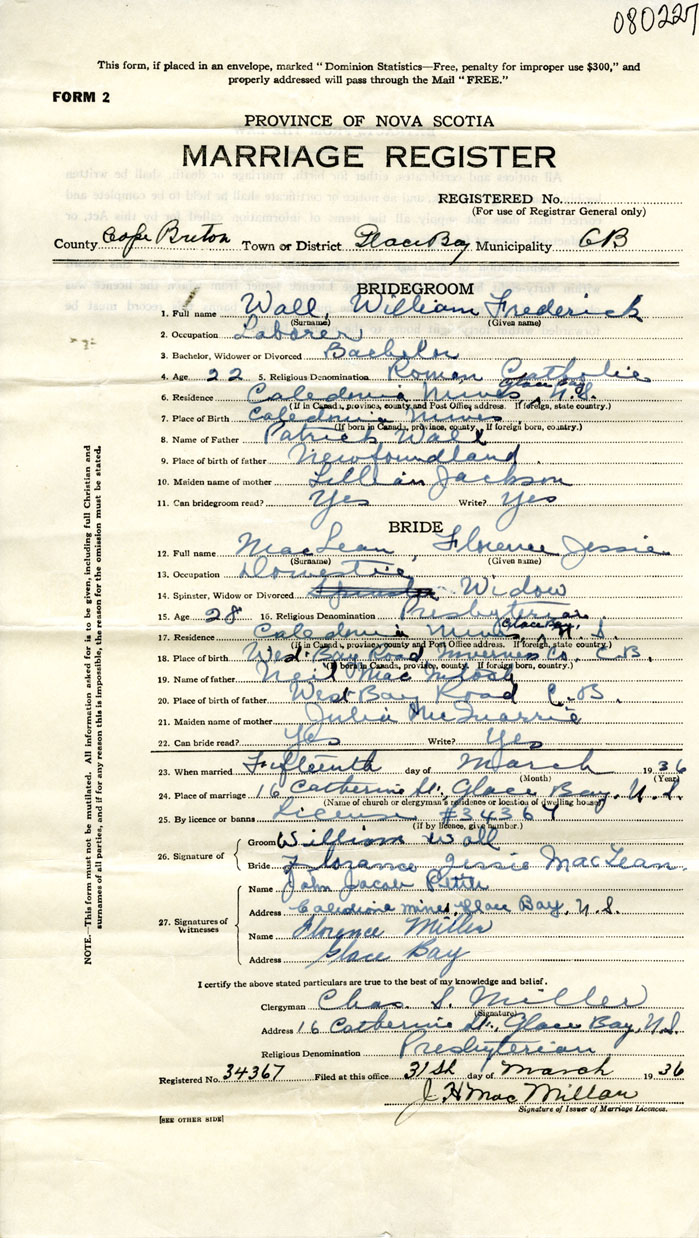 080227
This form, if placed in an envelope, marked "Dominion Statistics—Free, penalty for improper use $300," and
properly addressed will pass through the Mail "FREE."
FORM 2
PROVINCE OF NOVA SCOTIA
MARRIAGE REGISTER
REGISTERED No.
(For use of Registrar General only)
County Cape Breton Town or District Glace Bay Municipality CB
BRIDEGROOM
1. Full name Wall, William Frederick
(Surname) (Given name)
2. Occupation Laborer
3. Bachelor, Widower or Divorced Bachelor
4. Age 22 5. Religious Denomination Roman Catholic
6. Residence Caledonia Mines, Glace Bay, N.S.
(If in Canada, province, county and Post Office address. If foreign, state country.)
7. Place of Birth Caledonia Mines
(If born in Canada, province, county. If foreign born, country.)
8. Name of Father Patrick Wall
9. Place of birth of father Newfoundland
10. Maiden name of mother Lillian Jackson
11. Can bridegroom read? Yes Write? Yes
BRIDE
12. Full name MacLean, Florence Jessie
(Surname) (Given name)
13. Occupation Domestic
14. Spinster, Widow or Divorced Spinster Widow
15. Age 28 16. Religious Denomination Presbyterian
17. Residence Caledonia Mines, Glace Bay, N.S.
(If in Canada, province, county and Post Office address. If foreign, state country.)
18. Place of birth West Bay Road Inverness Co. C.B.
(If born in Canada, province, county. If foreign born, country.)
19. Name of father Neil MacIntosh
20. Place of birth of father West Bay Road C.B.
21. Maiden name of mother Julia McQuarrie
22. Can bride read? Yes Write? Yes
23. When married Fifteenth day of March 1936
(Month) (Year)
24. Place of marriage 16 Catherine St., Glace Bay, N.S.
(Name of church or clergyman's residence or location of dwelling house)
25. By licence or banns License #34367
(If by licence, give number.)
26. Signature of Groom William Wall
Bride Florance Jessie MacLean
27. Signatures of Witnesses
Name John Jacob
Address Caledonia mines, Glace Bay, N.S.
Name Florence Miller
Address Glace Bay
I certify the above stated particulars are true to the best of my knowledge and belief.
Clergyman Chas. S. Miller
(Signature)
Address 16 Catherine St., Glace Bay, N.S.
Religious Denomination Presbyterian
Registered No. 34367 Filed at this office 31st day of March 1936
J H MacMillan
Signature of Issuer of Marriage Licences.
[SEE OTHER SIDE]
NOTE.—This form must not be mutilated. All information asked for is to be given, including full Christian and
surnames of all parties, and if for any reason this is impossible, the reason for the omission must be stated.